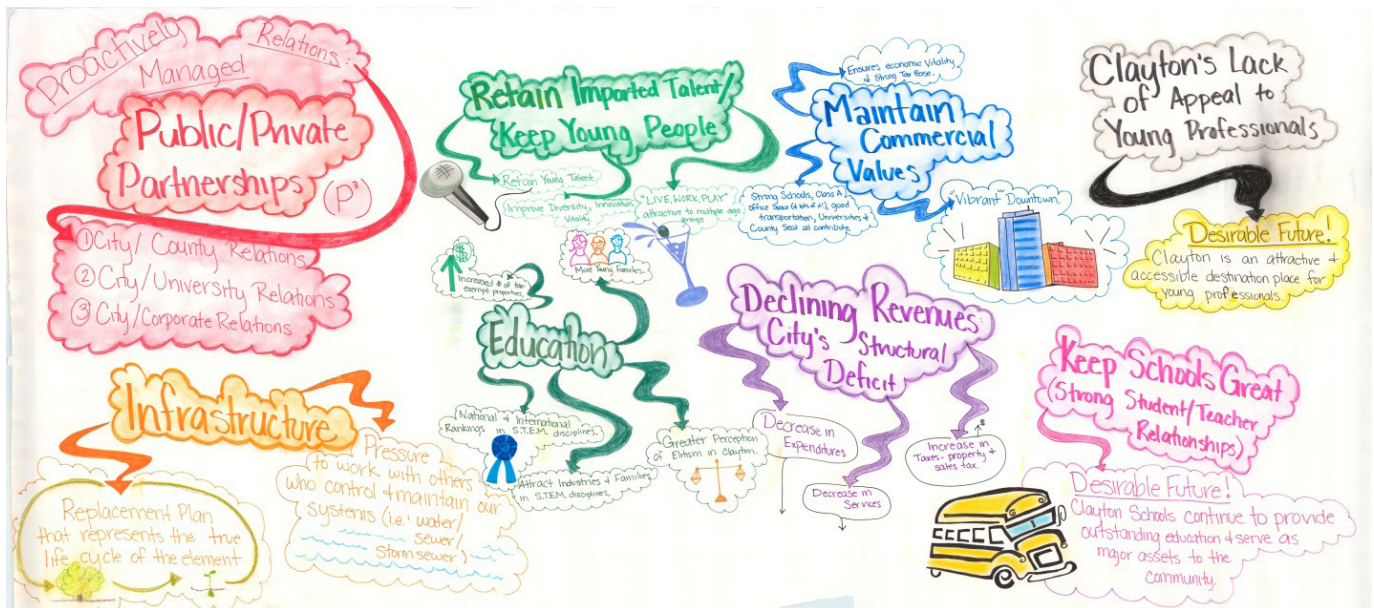 Proactively
Managed
Relations:
Public/Private
Partnerships
(P³)
① City/County Relations
② City/University Relations
③ City/Corporate Relations
Infrastructure
Replacement Plan
that represents the true
life cycle of the element
Pressure
to work with others
who control & maintain our
systems (i.e.: water/
sewer/
storm sewer)
Retain Imported Talent/
Keep Young People
Retain Young Talent
Improve Diversity, Innovation,
Vitality.
"LIVE, WORK, PLAY"
attractive to multiple age
groups
$
Increased # of tax
exempt properties.
More Young Families.
Education
National & International
Rankings in S.T.E.M. disciplines.
Attract Industries & Families
in S.T.E.M. disciplines.
Greater Perception
of Elitism in Clayton.
Ensures economic Vitality
& Strong Tax Base.
Maintain
Commercial
Values
Strong Schools, Class A
Office Space
good
transportation, Universities &
County Seat all contribute.
"Vibrant Downtown."
Declining Revenues:
City's Structural
Deficit
Decrease in
Expenditures
Decrease in
Services
$
Increase in
Taxes- property &
sales tax.
Clayton's Lack
of Appeal to
Young Professionals
Desirable Future!
Clayton is an attractive &
accessible destination place for
young professionals.
Keep Schools Great
(Strong Student/Teacher
Relationships)
Desirable Future!
Clayton Schools continue to provide
outstanding education & serve as
major assets to the
community.